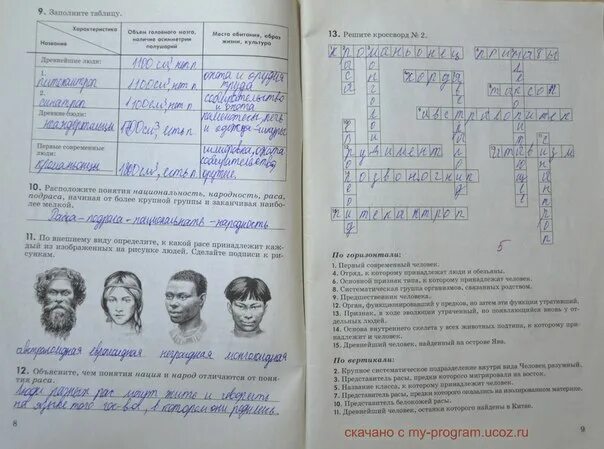 9. Заполните таблицу.
Характеристика
Название
Объем головного мозга, наличие асимметрии полушарий
Место обитания, образ жизни, культура
Древнейшие люди:
1100 см³, нет п.
1.
питекантроп
1100 см³, нет п.
охота и орудия труда
2.
синантроп
1100 см³, нет п.
собирательство и охота
Древние люди:
неандертальцы
есть п.
речь
и одежда - шкуры
Первые современные люди:
кроманьонцы
есть п.
шлифовка, охота
собирательство
орудие.
10. Расположите понятия национальность, народность, раса,
подраса, начиная от более крупной группы и заканчивая наибо-
лее мелкой.
Раса - подраса - национальность - народность
11. По внешнему виду определите, к какой расе принадлежит каж-
дый из изображенных на рисунке людей. Сделайте подписи к ри-
сункам.
австралоидная европеоидная негроидная монголоидная
12. Объясните, чем понятия нация и народ отличаются от поня-
тия раса.
Люди разных рас могут жить и говорить
на языке того гос-ва, в котором они родились.
8
13. Решите кроссворд № 2.
кроманьонец
приматы
хорда
таксон
австралопитек
рудимент
атавизм
позвоночник
питекантроп
5
По горизонтали:
1. Первый современный человек.
4. Отряд, к которому принадлежат люди и обезьяны.
6. Основной признак типа, к которому принадлежит человек.
8. Систематическая группа организмов, связанных родством.
9. Предшественник человека.
12. Орган, функционировавший у предков, но затем эти функции утративший.
13. Признак, в ходе эволюции утраченный, но проявляющийся вновь у от-
дельных людей.
14. Основа внутреннего скелета у всех животных подтипа, к которому прина-
длежит и человек.
15. Древнейший человек, найденный на острове Ява.
По вертикали:
2. Крупное систематическое подразделение внутри вида Человек разумный.
3. Представитель расы, предки которого мигрировали на восток.
5. Название класса, к которому принадлежит человек.
7. Представитель расы, предки которого оказались на изолированном материке.
10. Представитель белокожей расы.
11. Древнейший человек, останки которого найдены в Китае.
9
скачано с my-program.ucoz.ru